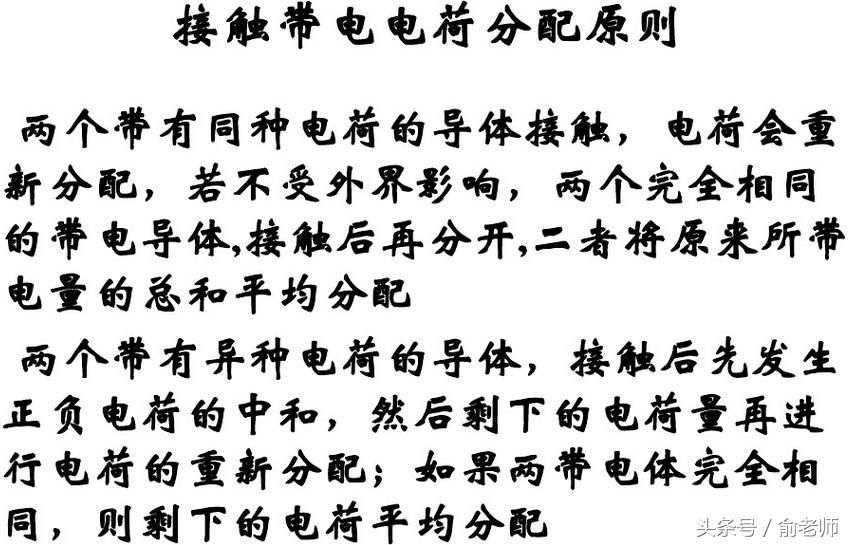 接触带电电荷分配原则
两个带有同种电荷的导体接触，电荷会重
新分配，若不受外界影响，两个完全相同
的带电导体,接触后再分开,二者将原来所带
电量的总和平均分配
两个带有异种电荷的导体，接触后先发生
正负电荷的中和，然后剩下的电荷量再进
行电荷的重新分配；如果两带电体完全相
同，则剩下的电荷平均分配
头条号 / 俞老师